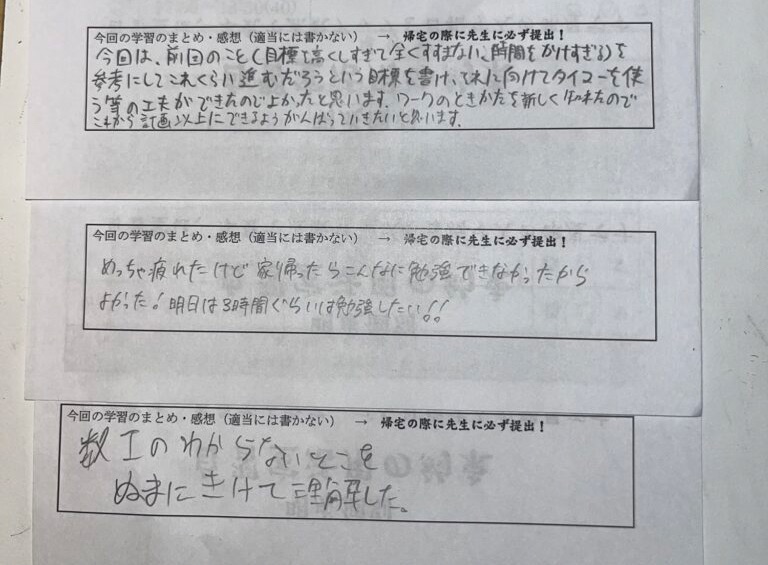 今回の学習のまとめ・感想（適当には書かない）　→　帰宅の際に先生に必ず提出！
今回は、前回のこと（目標を高くしすぎて全くすすまない、時間をかけすぎる）を
参考にしてこれくらい進むだろうという目標を書け、それに向けてタイマーを使
う等の工夫ができたのでよかったと思います。ワークのときかたを新しく知れたので
これから計画以上にできるようがんばっていきたいと思います。
今回の学習のまとめ・感想（適当には書かない）　→　帰宅の際に先生に必ず提出！
めっちゃ疲れたけど家帰ったらこんなに勉強できなかったから
よかった！明日は3時間ぐらいは勉強したい!!
今回の学習のまとめ・感想（適当には書かない）　→　帰宅の際に先生に必ず提出！
数Iのわからないとこを
ぬまにきけて理解した。